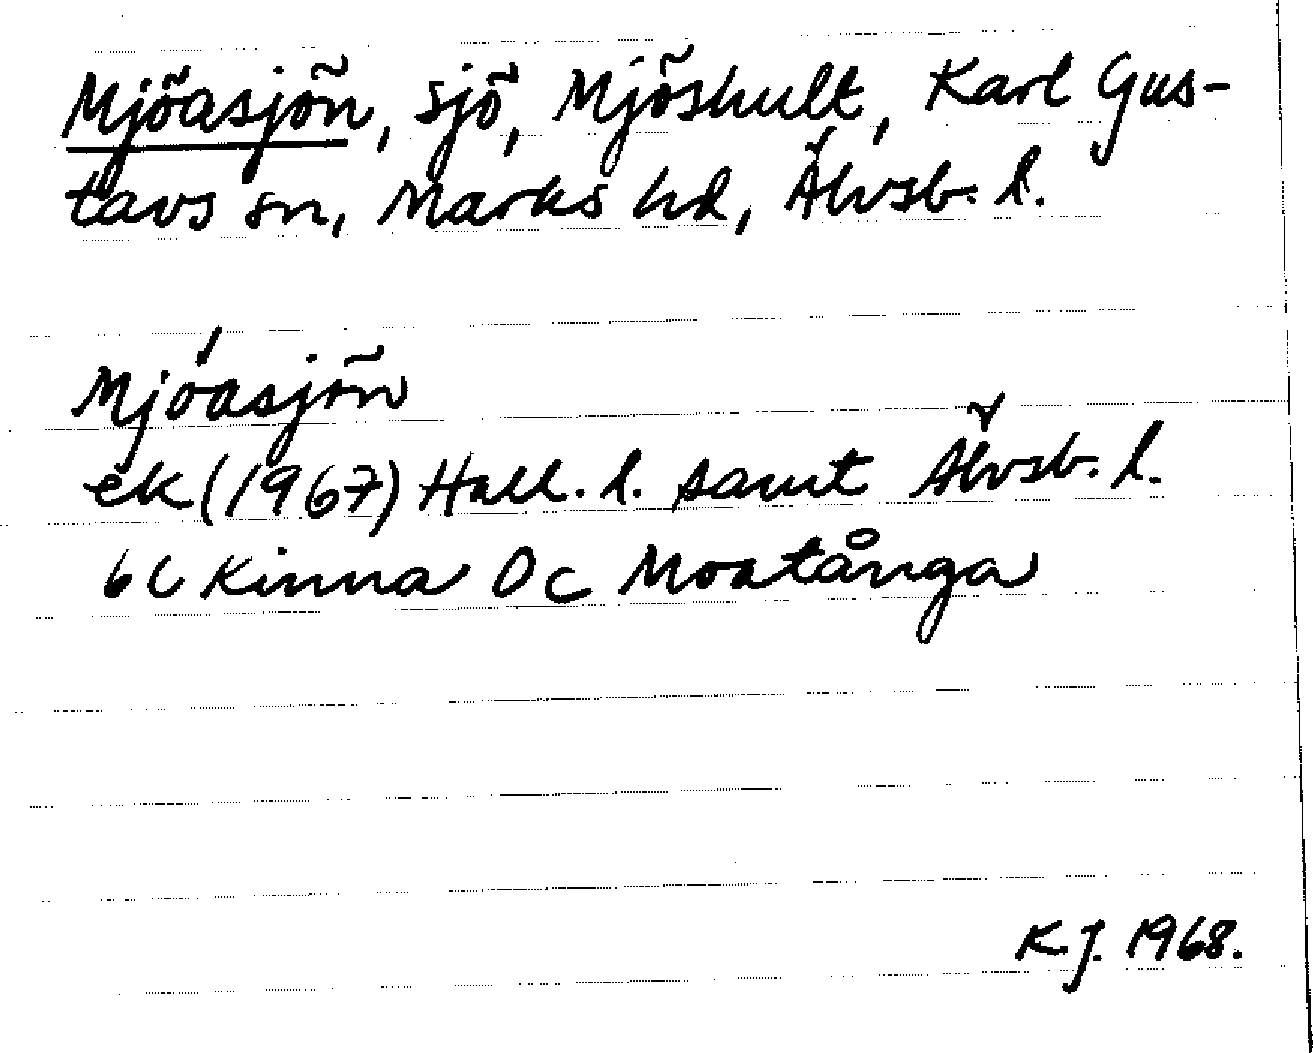 Mjöasjön, sjö, Mjöshult, Karl Gus-
tavs sn, Marks hd, Älvsb. l.
Mjöasjön
ek (1967) Hall. l. samt Älvsb. l.
6C Kinna 0c Moatånga
K.J. 1968.